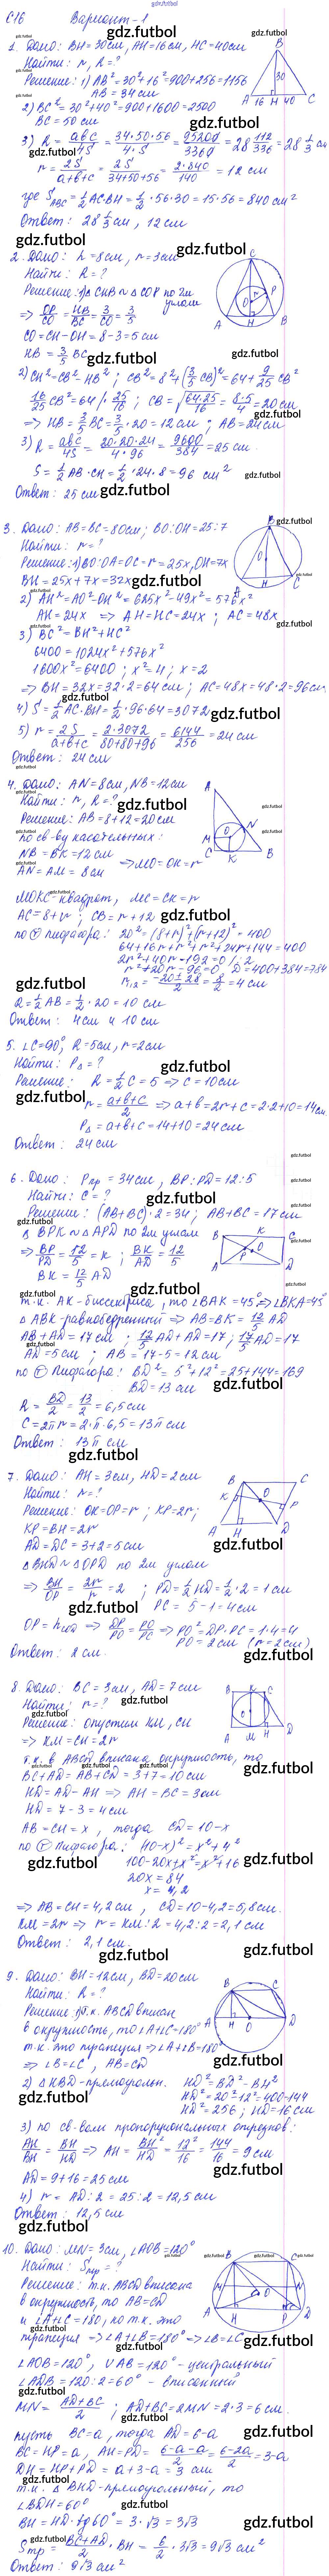 gdz.futbol
С16 Вариант-1
1. Дано: BH=30см, AH=16см, HC=40см
Найти: r, R=?
Решение: 1) AB²=30²+16²=900+256=1156
AB=34см
2) BC²=30²+40²=900+1600=2500
BC=50 см
3) R = abc/4S = 34·50·56/4·S = 95200/3360 = 28 112/336 = 28 1/3 см
r = 2S/a+b+c = 2S/34+50+56 = 2·840/140 = 12 см
где S ABC = 1/2 AC·BH = 1/2·56·30 = 15·56 = 840 см²
Ответ: 28 1/3 см, 12 см
2. Дано: h=8см, r=3см
Найти: R=?
Решение: 1) Δ CHB ~ Δ COP по 2м
углам
=> OP/CO = HB/BC = 3/CO = 3/5
CO=CH-OH=8-3=5см
HB = 3/5 BC
2) CH²=CB²-HB²; CB²=8²+(3/5 CB)²=64+9/25 CB²
16/25 CB²=64 /· 25/16; CB=√64·25/16 = 8·5/4 = 20см
=> HB = 3/5 BC = 3/5·20=12см; AB=24см
3) R = abc/4S = 20·20·24/4·96 = 9600/384 = 25 см.
S = 1/2 AB·CH = 1/2·24·8=96 см²
Ответ: 25 см
3. Дано: AB=BC=80см; BO:OH=25:7
Найти: r=?
Решение: 1) BO=OA=OC=r=25x, OH=7x
BH=25x+7x=32x
2) AH²=AO²-OH²=625x²-49x²=576x²
AH=24x => AH=HC=24x; AC=48x
3) BC²=BH²+HC²
6400=1024x²+576x²
1600x²=6400; x²=4; x=2
=> BH=32x=32·2=64см; AC=48x=48·2=96см
4) S = 1/2 AC·BH = 1/2·96·64=3072
5) r = 2S/a+b+c = 2·3072/80+80+96 = 6144/256 = 24 см
Ответ: 24 см
4. Дано: AN=8см, NB=12см
Найти: r, R=?
Решение: AB=8+12=20см
по св-ву касательных:
NB=BK=12см
AN=AM=8см => MO=OK=r
MOKC-квадрат, MC=CK=r
AC=8+r; CB=r+12
по т Пифагора: 20²=(8+r)²+(r+12)²=400
64+16r+r²+r²+24r+144=400
2r²+40r-192=0 /:2
r²+20r-96=0 D=400+384=784
r1,2 = -20±28/2 = 8/2 = 4 см
R = 1/2 AB = 1/2·20=10 см
Ответ: 4см и 10 см
5. ∠C=90°, R=5см, r=2см
Найти: PΔ=?
Решение: R = 1/2 C = 5 => C=10см
r = a+b-c/2 => a+b=2r+c=2·2+10=14см
PΔ=a+b+c=14+10=24см
Ответ: 24см
6. Дано: Pпр=34см, BP:PD=12:5
Найти: C=?
Решение: (AB+BC)·2=34; AB+BC=17см
Δ BPK ~ Δ APD по 2м углам
=> BP/PD = 12/5 = k; BK/AD = 12/5
BK = 12/5 AD
т.к. AK-биссектриса, то ∠BAK=45° => ∠BKA=45°
Δ ABK-равнобедренный => AB=BK = 12/5 AD
AB+AD=17 см; 12/5 AD+AD=17; 17/5 AD=17
AD=5см; AB=17-5=12см
по т Пифагора: BD²=5²+12²=25+144=169
BD=13 см
R = BD/2 = 13/2 = 6,5см
C=2πr=2·π·6,5=13π см
Ответ: 13π см
7. Дано: AH=3см, HD=2см
Найти: r=?
Решение: OK=OP=r; KP=2r;
KP=BH=2r
AD=DC=3+2=5см
Δ BHD ~ Δ OPD по 2м углам
=> BH/OP = 2r/r = 2; PD=1/2 HD=1/2·2=1см
PC=5-1=4см
=> DP/PO = PO/PC => PO²=DP·PC=1·4=4
PO=2см (r=2см)
Ответ: 2 см.
8 Дано: BC=3см, AD=7см
Найти: r=?
Решение: опустим KM, CH
=> KM=CH=2r
т.к. в ABCD вписана окружность, то
BC+AD=AB+CD=3+7=10см
HD=AD-AH => AH=BC=3см
HD=7-3=4см
AB=CH=x, тогда CD=10-x
по т Пифагора: (10-x)²=x²+4²
100-20x+x²=x²+16
20x=84
x=4,2
=> AB=CH=4,2см, CD=10-4,2=5,8см.
KM=2r => r=KM:2=4,2:2=2,1см
Ответ: 2,1 см.
9. Дано: BH=12см, BD=20см
Найти: R=?
Решение: 1) т.к. ABCD вписан
в окружность, то ∠A+∠C=180°
т.к. это трапеция => ∠A+∠B=180°
=> ∠B=∠C, AB=CD
2) Δ HBD-прямоугольн. HD²=BD²-BH²
HD²=20²-12²=400-144
HD²=256; HD=16см
3) по св-вам пропорциональных отрезков:
AH/BH = BH/HD => AH = BH²/HD = 12²/16 = 144/16 = 9см
AD=9+16=25см
4) r=AD:2=25:2=12,5см
Ответ: 12,5см
10. Дано: MN=3см, ∠AOB=120°
Найти: Sтр=?
Решение: т.к. ABCD вписана
в окружность, то AB=CD
и ∠A+∠C=180, но т.к. это
трапеция => ∠A+∠B=180° => ∠B=∠C
∠AOB=120°, ∪AB=120°-центральный
∠ADB=120:2=60°-вписанный
MN = AD+BC/2; AD+BC=2MN=2·3=6см.
пусть BC=a, тогда AD=6-a
BC=HP=a, AH=PD = 6-a-a/2 = 6-2a/2 = 3-a
DH=HP+PD=a+3-a=3 см
т.к. Δ BHD-прямоугольный, то
∠BDH=60°
BH=HD·tg60°=3·√3=3√3
Sтр = BC+AD/2·BH = 6/2·3√3=9√3 см²
Ответ: 9√3 см²